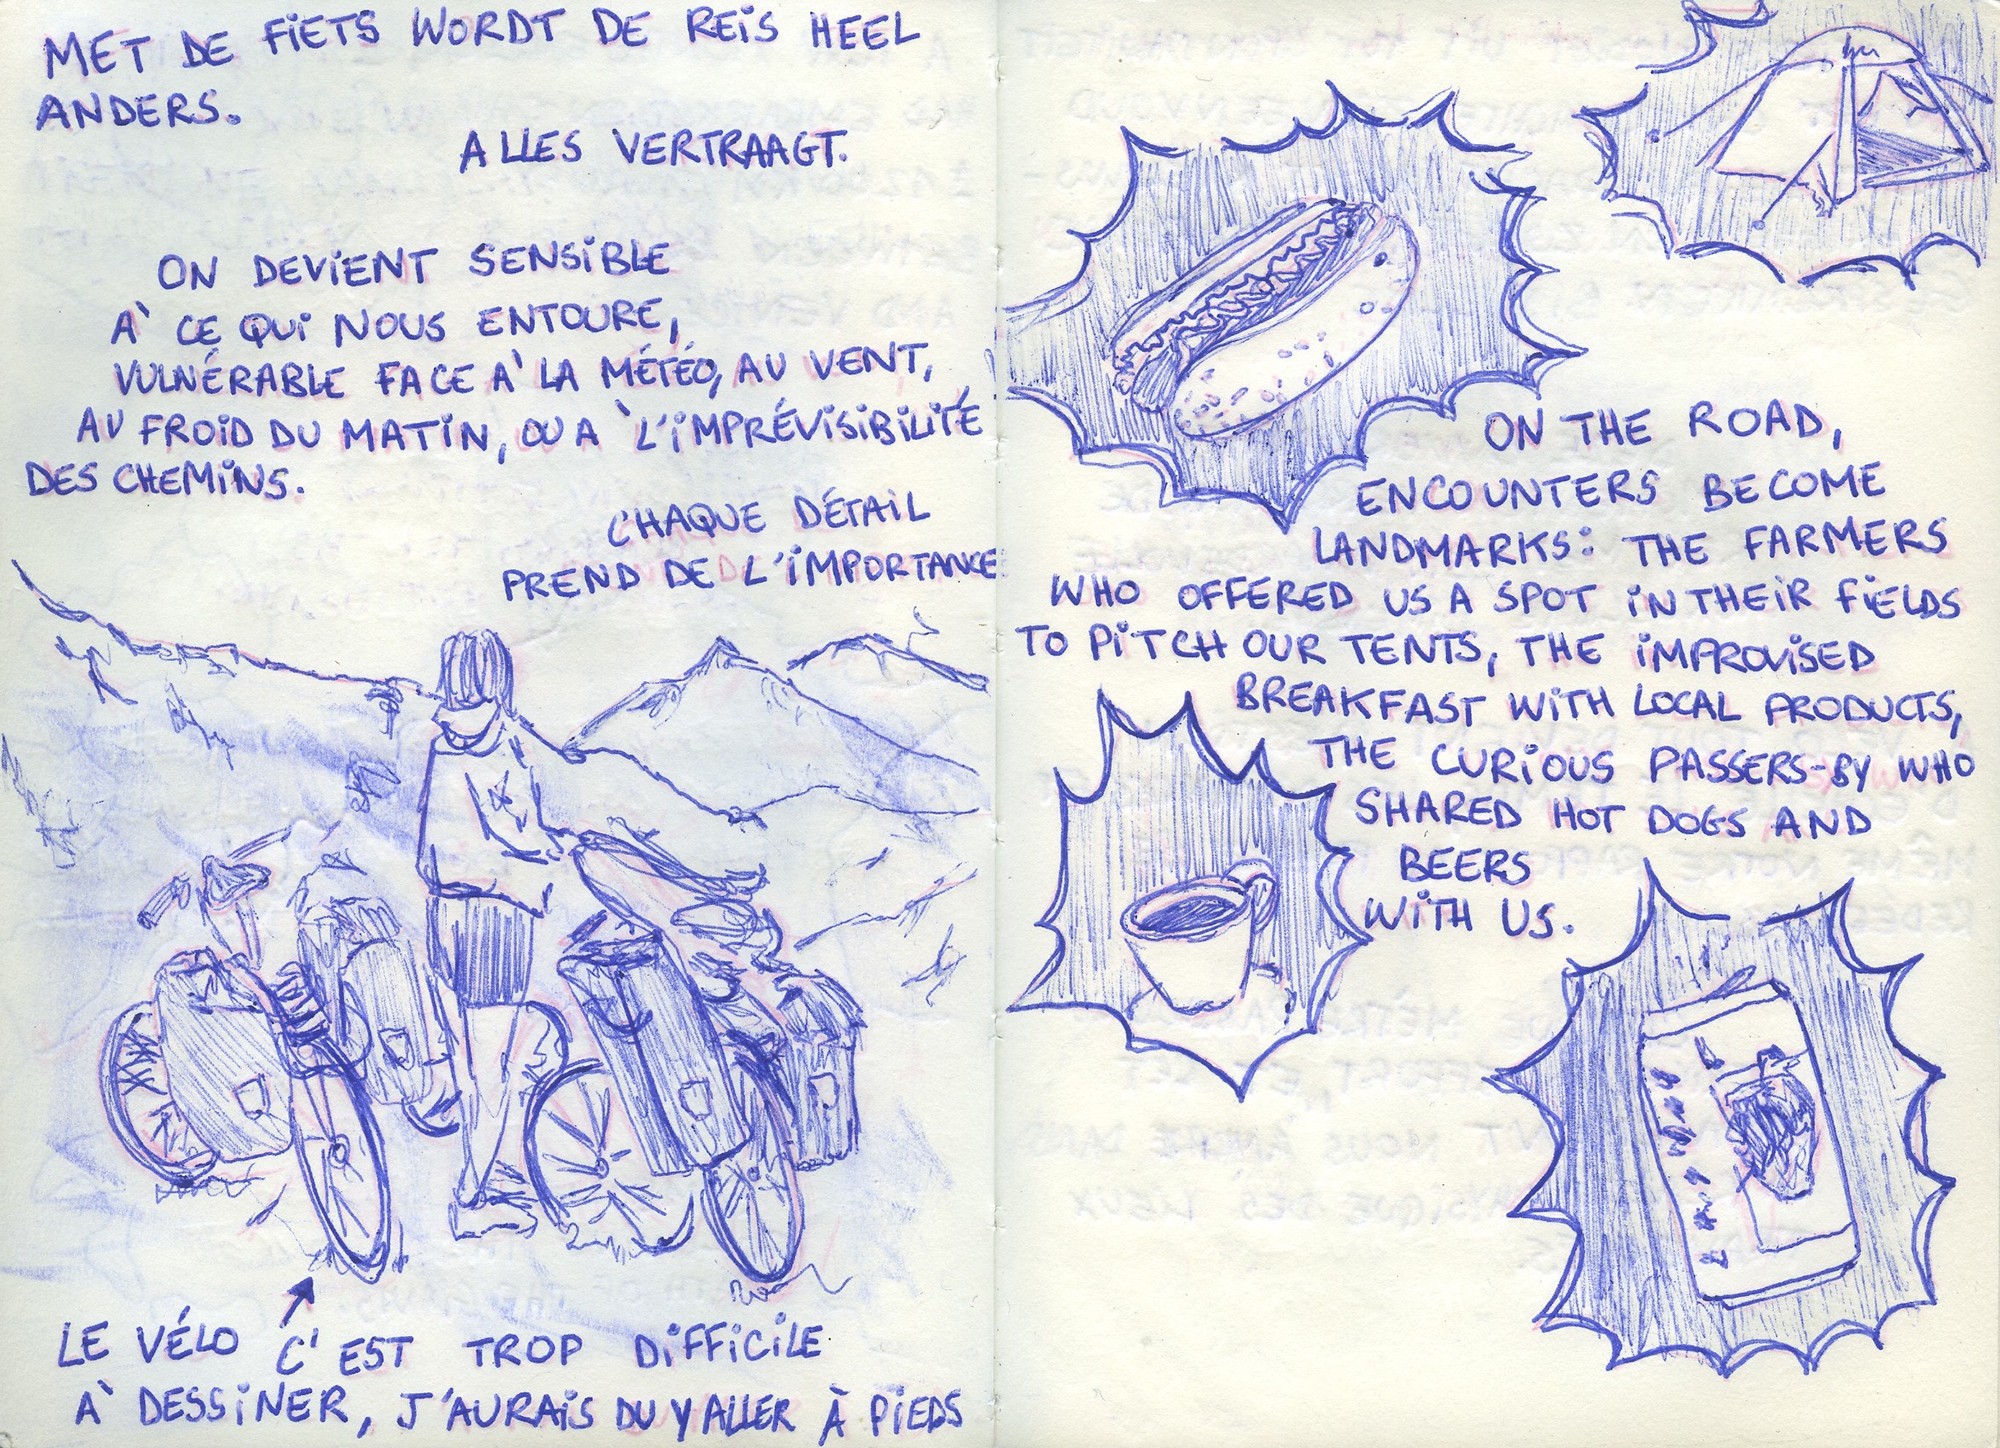 MET DE FIETS WORDT DE REIS HEEL
ANDERS.
ALLES VERTRAAGT.
ON DEVIENT SENSIBLE
À CE QUI NOUS ENTOURE,
VULNÉRABLE FACE À LA MÉTÉO, AU VENT,
AU FROID DU MATIN, OU À L'IMPRÉVISIBILITÉ
DES CHEMINS.
CHAQUE DÉTAIL
PREND DE L'IMPORTANCE
LE VÉLO C'EST TROP DIFFICILE
À DESSINER, J'AURAIS DU Y ALLER À PIEDS
ON THE ROAD,
ENCOUNTERS BECOME
LANDMARKS: THE FARMERS
WHO OFFERED US A SPOT IN THEIR FIELDS
TO PITCH OUR TENTS, THE IMPROVISED
BREAKFAST WITH LOCAL PRODUCTS,
THE CURIOUS PASSERS-BY WHO
SHARED HOT DOGS AND
BEERS
WITH US.